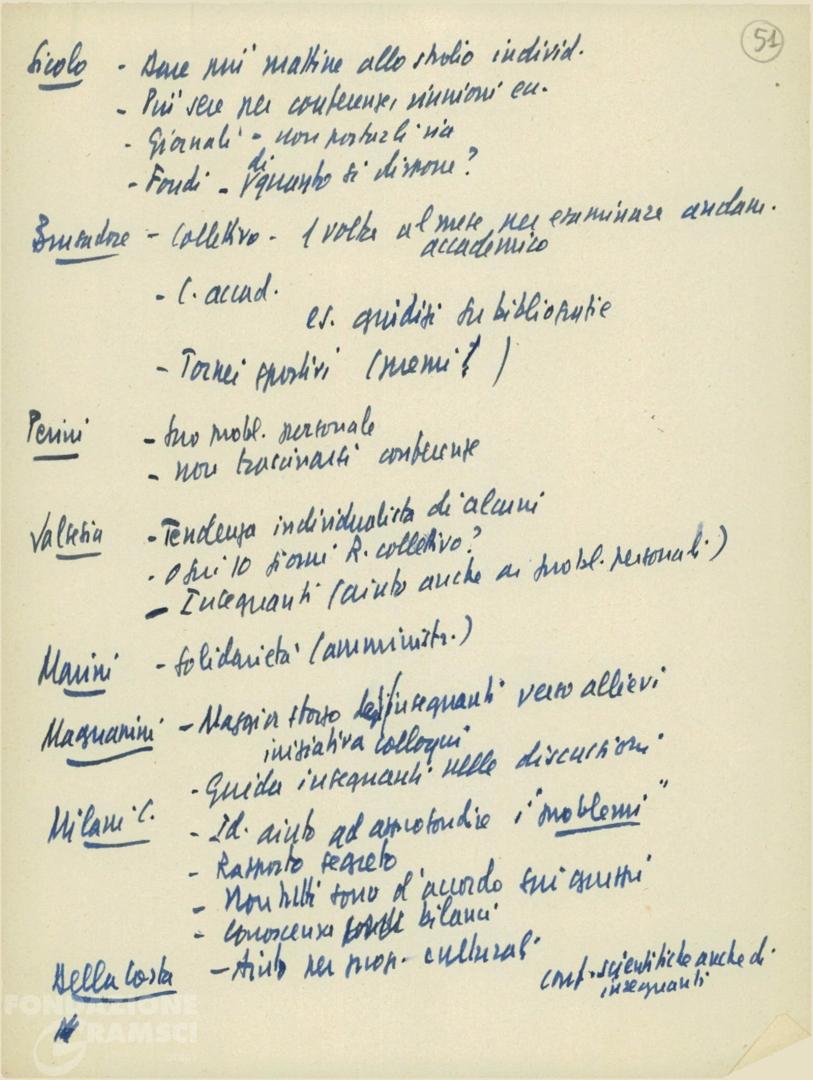 51
Sicolo - Dare più mattine allo studio individ.
- Più sere per conferenze, riunioni ecc.
- Giornali - non portarli via
- Fondi - di quanto si dispone?
Brusadore - Collettivo - 1 volta al mese per esaminare andam. accademico
- C. accad.
es. giudizi su bibliografie
- Tornei sportivi (premi!)
Perini - suo probl. personale
- non trascinarsi conferenze
Valsesia - Tendenza individualista di alcuni
- Ogni 10 giorni R. collettivo?
- Insegnanti (aiuto anche ai probl. personali)
Marini - Solidarietà (amministr.)
Magnanini - Maggior sforzo insegnanti verso allievi
iniziativa colloqui
- Guida insegnanti nelle discussioni
Milani C. - Id. aiuto ad approfondire i "problemi"
- Rapporto segreto
- Non tutti sono d'accordo sui gruppi
- Conoscenza bilanci
Della Costa - Aiuto per prop. culturali
conf. scientifiche anche di insegnanti
FONDAZIONE
GRAMSCI